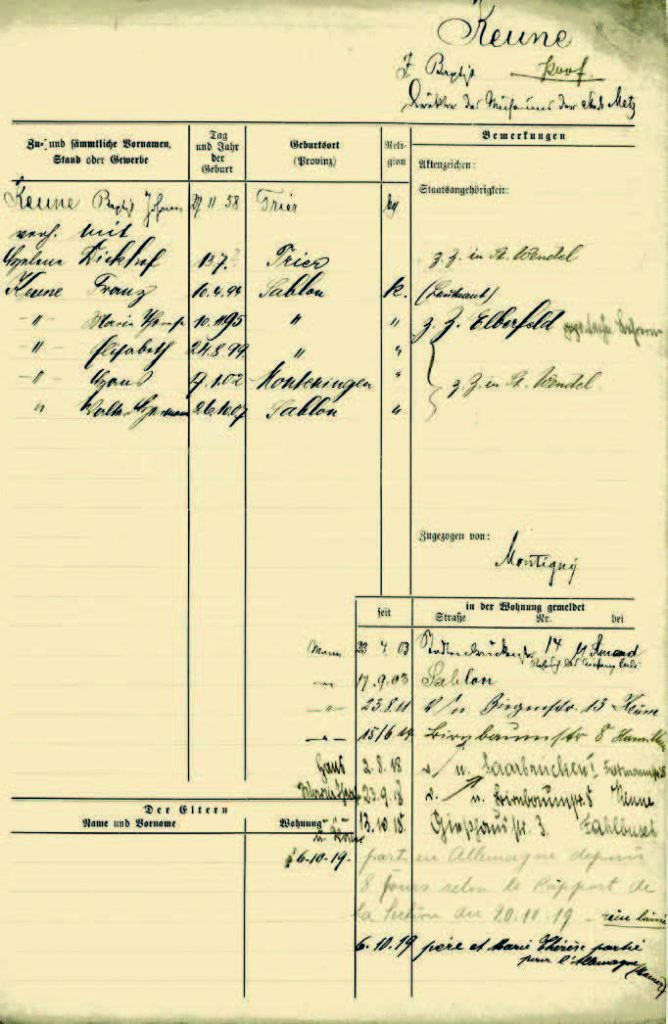 Keune
J. Baptist Prof.
Direktor des Museums der Stadt Metz
Zu- und sämmtliche Vornamen,
Stand oder Gewerbe
Tag
und Jahr
der
Geburt
Geburtsort
(Provinz)
Reli-
gion
Bemerkungen
Aktenzeichen:
Staatsangehörigkeit:
Keune Baptist Johann 11 58 Trier
verh. mit
Dickhof 13.7. Trier z. Z. in St. Wendel
Keune Franz 10.4.94 Sablon k. (Leutnant)
-"- Maria 95 " " z. Z. Elberfeld
-"- Elisabeth 24.8.99 " "
-"- Hans 1.02 Monteningen " z. Z. in St. Wendel
" Walter 26.10.07 Sablon "
Zugezogen von:
Montigny
seit
in der Wohnung gemeldet
Straße Nr. bei
Mann 23 4 03 14 St Amand
-"- 17.9.03 Sablon
-"- 23.8.11 13 Keune
-"- 15/6 Birnbaumstr 8
Hans 2.8.18 v/ n. Saarbrücken
23.9.18 v. n. Birnbaumstr. 8 Keune
13.10.18. Gießhausstr. 3.
Der Eltern
Name und Vorname
Wohnung
6-10-19. parti en Allemagne depuis
8 jours selon le Rapport de
la Section du 20.10.19 -
6.10.19 père et Marie Thérèse partis
pour l'Allemagne